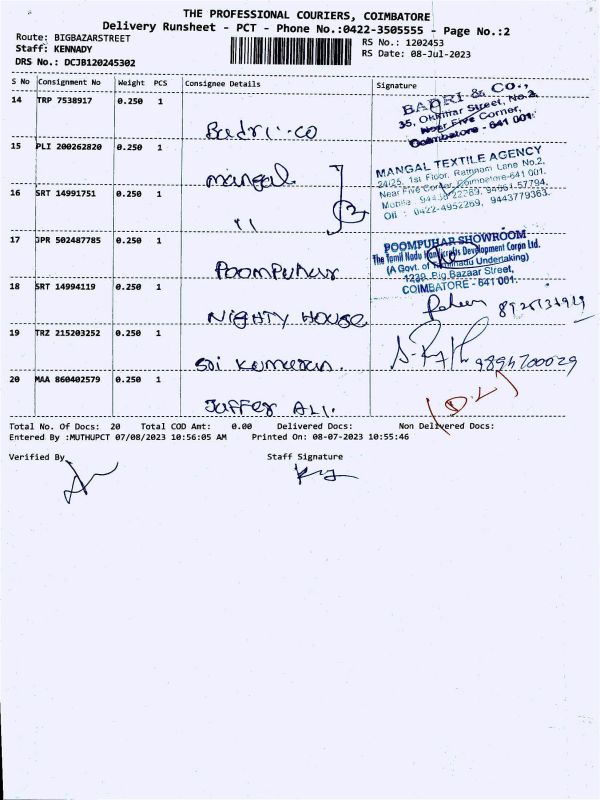 THE PROFESSIONAL COURIERS, COIMBATORE
Delivery Runsheet - PCT - Phone No.:0422-3505555 - Page No.:2
Route: BIGBAZARSTREET
Staff: KENNADY
DRS No.: DCJB120245302
RS No.: 1202453
RS Date: 08-Jul-2023
S No Consignment No Weight PCS Consignee Details Signature
14 TRP 7538917 0.250 1
Badri .. co
BADRI & Co.,
35, Okkiliar Street, No.2,
Near Five Corner,
Coimbatore - 641 001.
15 PLI 200262820 0.250 1
mangal
MANGAL TEXTILE AGENCY
24/25, 1st Floor, Rathnam Lane No.2,
Near Five Corner, Coimbatore-641 001.
Mobile : 94438 22269, 94861-57794,
Off : 0422-4952269, 9443779363.
16 SRT 14991751 0.250 1
" 2
17 JPR 502487785 0.250 1
Poompuhar
POOMPUHAR SHOWROOM
The Tamil Nadu Handicrafts Development Corpn Ltd.
(A Govt. of Tamilnadu Undertaking)
1239, Big Bazaar Street,
COIMBATORE - 641 001.
18 SRT 14994119 0.250 1
NIGHTY HOUSE
19 TRZ 215203252 0.250 1
Sri Kumaran.
9894700029
20 MAA 860402579 0.250 1
Jaffer ALI.
(D.L)
Total No. Of Docs: 20 Total COD Amt: 0.00 Delivered Docs: Non Delivered Docs:
Entered By :MUTHUPCT 07/08/2023 10:56:05 AM Printed On: 08-07-2023 10:55:46
Verified By Staff Signature